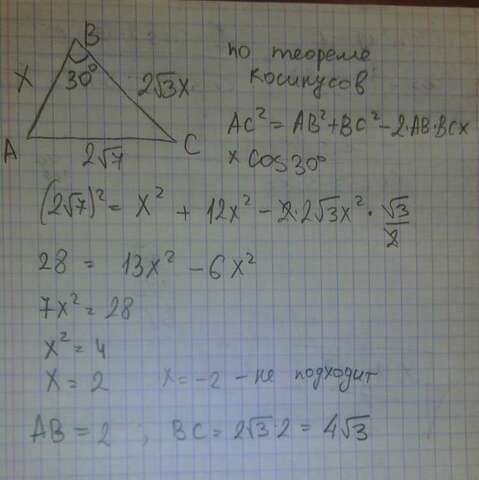 B
X 30° 2√3x
A C
2√7
по теореме
косинусов
AC² = AB² + BC² - 2·AB·BC×
× cos 30°
(2√7)² = x² + 12x² - 2·2√3x² · √3/2
28 = 13x² - 6x²
7x² = 28
x² = 4
x = 2 x = -2 - не подходит
AB = 2 ; BC = 2√3·2 = 4√3